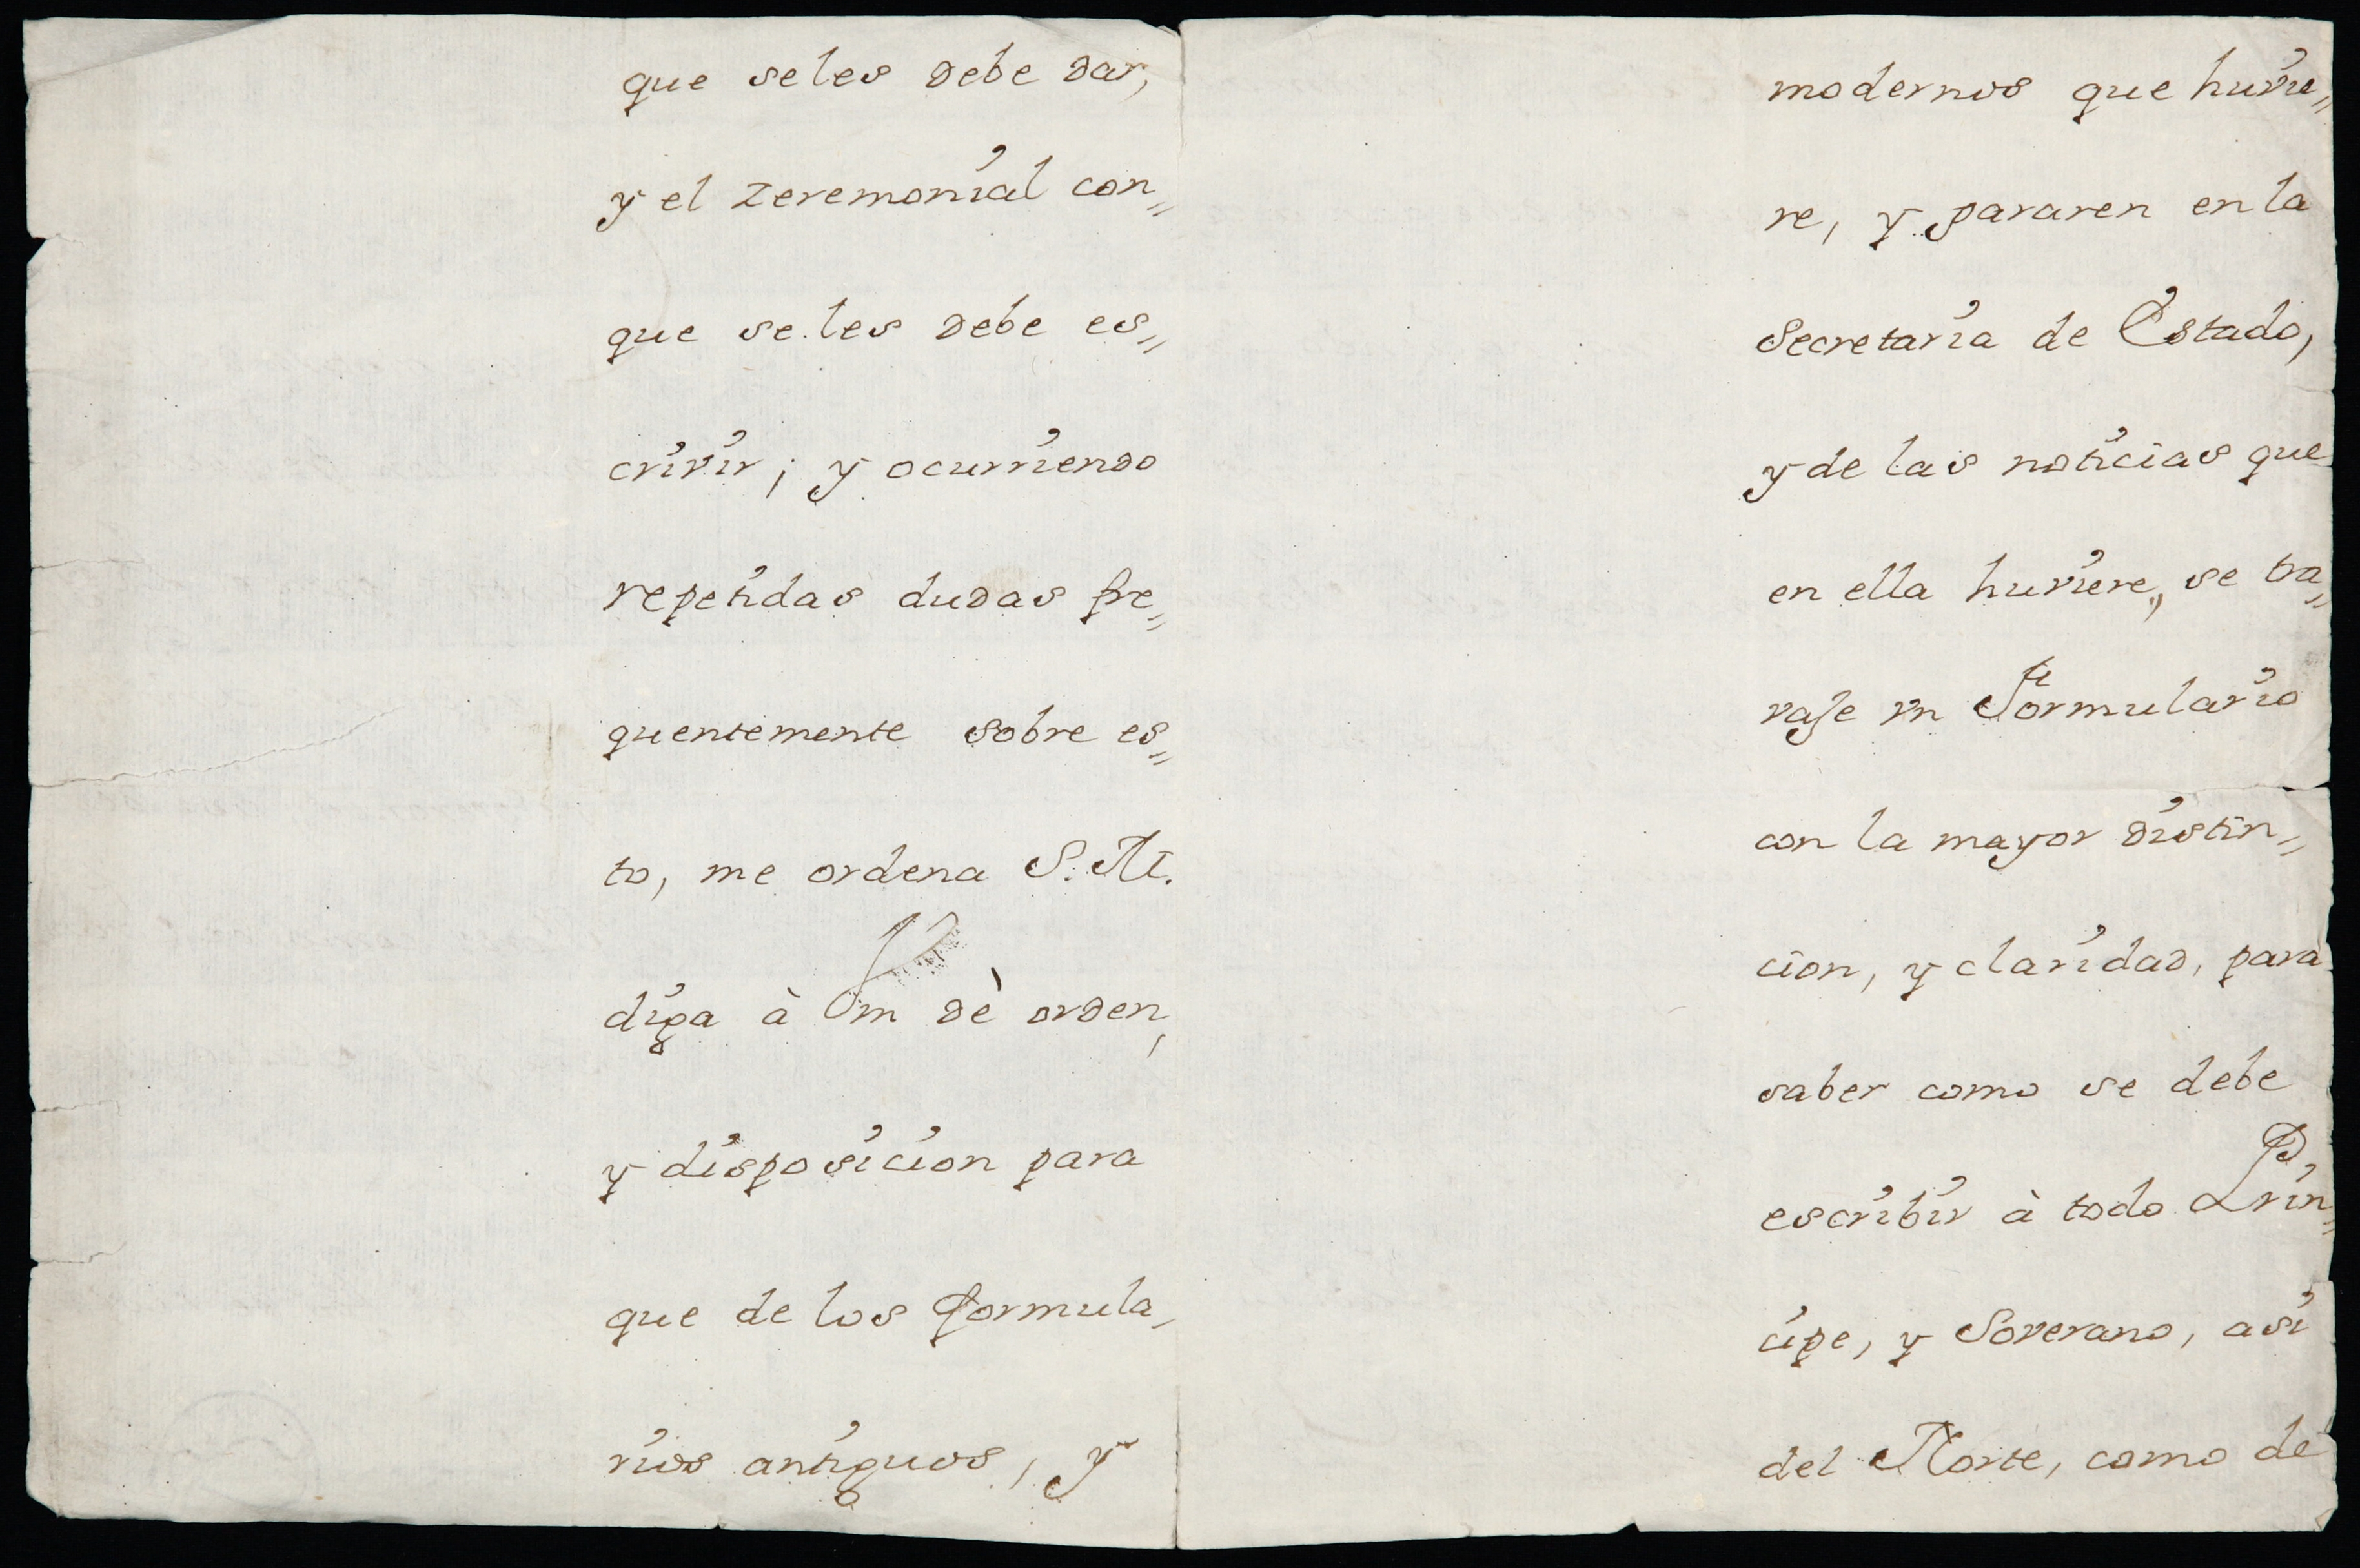 que se les debe dar,
y el zeremonial con„
que se les debe es„
crivir; y ocurriendo
repetidas dudas fre„
quentemente sobre es„
to, me ordena S. M.
diga à Vm dè orden,
y disposicion para
que de los formula„
rios antiguos, y
modernos que huvie„
re, y pararen en la
Secretaria de Estado,
y de las noticias que
en ella huviere, se tra„
vaje vn Formulario
con la mayor distin„
cion, y claridad, para
saber como se debe
escribir à todo Prin„
cipe, y Soverano, asi
del Norte, como de